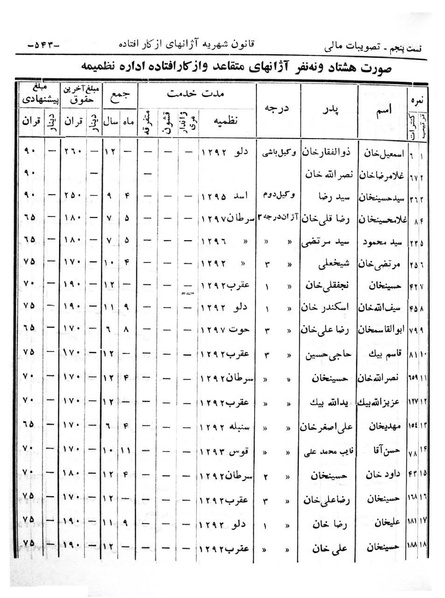 قسمت پنجم - تصویبات مالی قانون شهریه آژانهای از کار افتاده -۵۴۳-
صورت هشتاد ونه‌نفر آژانهای متقاعد واز کار افتاده اداره نظمیمه
نمره ترتیب اسم پدر درجه مدت خدمت جمع مبلغ آخرین حقوق مبلغ پیشنهادی
نظمیه قشون متفرقه ماه سال دینار قران دینار قران
۱ ۶ اسمعیل‌خان ذوالفقار خان وکیل‌باشی دلو ۱۲۹۲ — ۱۲ — ۲۶۰ — ۹۰
۲ ۶۷ غلامرضاخان نصرالله خان — ۹۰
۳ ۲۶ سید حسینخان سید رضا وکیل دوم اسد ۱۲۹۵ ۴ ۹ — ۲۵۰ — ۹۰
۴ ۸ غلامحسینخان رضا قلی خان آژان درجه ۳ سرطان ۱۲۹۷ ۵ ۷ — ۱۸۰ — ۶۵
۵ ۲۳ سید محمود سید مرتضی » » » ۱۲۹۶ ۵ ۷ — ۱۸۰ — ۶۵
۶ ۲۵ مرتضی خان شیخعلی » ۳ » ۱۲۹۲ ۴ ۱۰ — ۱۷۰ — ۷۵
۷ ۴۲ حسینخان نجفقلی خان » ۱ عقرب ۱۲۹۲ — ۱۲ — ۱۹۰ — ۷۰
۸ ۴۵ سیف‌الله خان اسکندر خان » ۱ دلو ۱۲۹۲ ۹ ۱۱ — ۱۹۰ — ۷۵
۹ ۷۹ ابوالقاسمخان رضا علی خان » ۳ حوت ۱۲۹۷ ۸ ۶ — ۱۷۰ — ۶۵
۱۰ ۸۱ قاسم بیك حاجی حسین » ۳ عقرب ۱۲۹۲ — ۱۲ — ۱۷۰ — ۷۵
۱۱ نصرالله خان حسینخان » » سرطان ۱۲۹۲ ۴ ۱۲ — ۱۷۰ — ۷۰
۱۲ ۱۲۷ عزیزالله بیك یدالله بیك » » عقرب ۱۲۹۲ — ۱۲ — ۱۷۰ — ۷۰
۱۳ ۱۵۴ مهدیخان علی اصغر خان » » سنبله ۱۲۹۲ ۴ ۶ — ۱۷۰ — ۶۵
۱۴ ۷۸ حسن آقا نایب محمد علی » » قوس ۱۲۹۳ ۱۱ ۱۰ — ۱۷۰ — ۷۰
۱۵ ۴۳ داود خان حسینخان » ۲ سرطان ۱۲۹۲ ۴ ۱۲ — ۱۸۰ — ۷۰
۱۶ ۱۶۸ حسینخان رضا علی خان » ۳ عقرب ۱۲۹۲ — ۱۲ — ۱۷۰ — ۷۵
۱۷ ۱۸۱ علیخان رضا خان » ۱ دلو ۱۲۹۲ ۹ ۱۱ — ۱۹۰ — ۷۵
۱۸ ۱۸۸ حسینخان علی خان » » عقرب ۱۲۹۲ — ۱۲ — ۱۹۰ — ۷۵